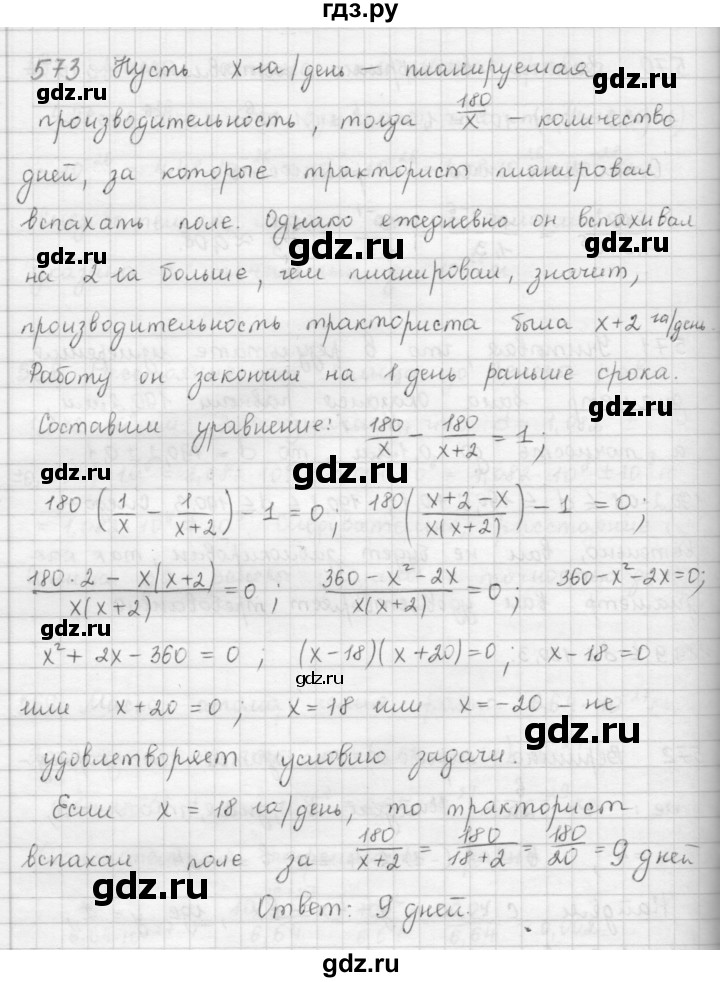 гдз.ру
573 Пусть х га/день – планируемая
производительность, тогда 180/x – количество
дней, за которые тракторист планировал
вспахать поле. Однако ежедневно он вспахивал
gdz.ru gdz.ru
на 2 га больше, чем планировал, значит,
производительность тракториста была х+2 га/день.
Работу он закончил на 1 день раньше срока.
gdz.ru
Составим уравнение: 180/x - 180/(x+2) = 1;
180(1/x - 1/(x+2)) - 1 = 0; 180((x+2-x)/(x(x+2))) - 1 = 0;
gdz.ru
(180·2 - x(x+2))/(x(x+2)) = 0, (360-x²-2x)/(x(x+2)) = 0, 360-x²-2x=0;
gdz.ru
x²+2x-360=0; (x-18)(x+20)=0; x-18=0
gdz.ru
или x+20=0; x=18 или x=-20 – не
gdz.ru
удовлетворяет условию задачи.
Если x=18 га/день, то тракторист
вспахал поле за 180/(x+2) = 180/(18+2) = 180/20 = 9 дней
gdz.ru
Ответ: 9 дней.
gdz.ru
gdz.ru